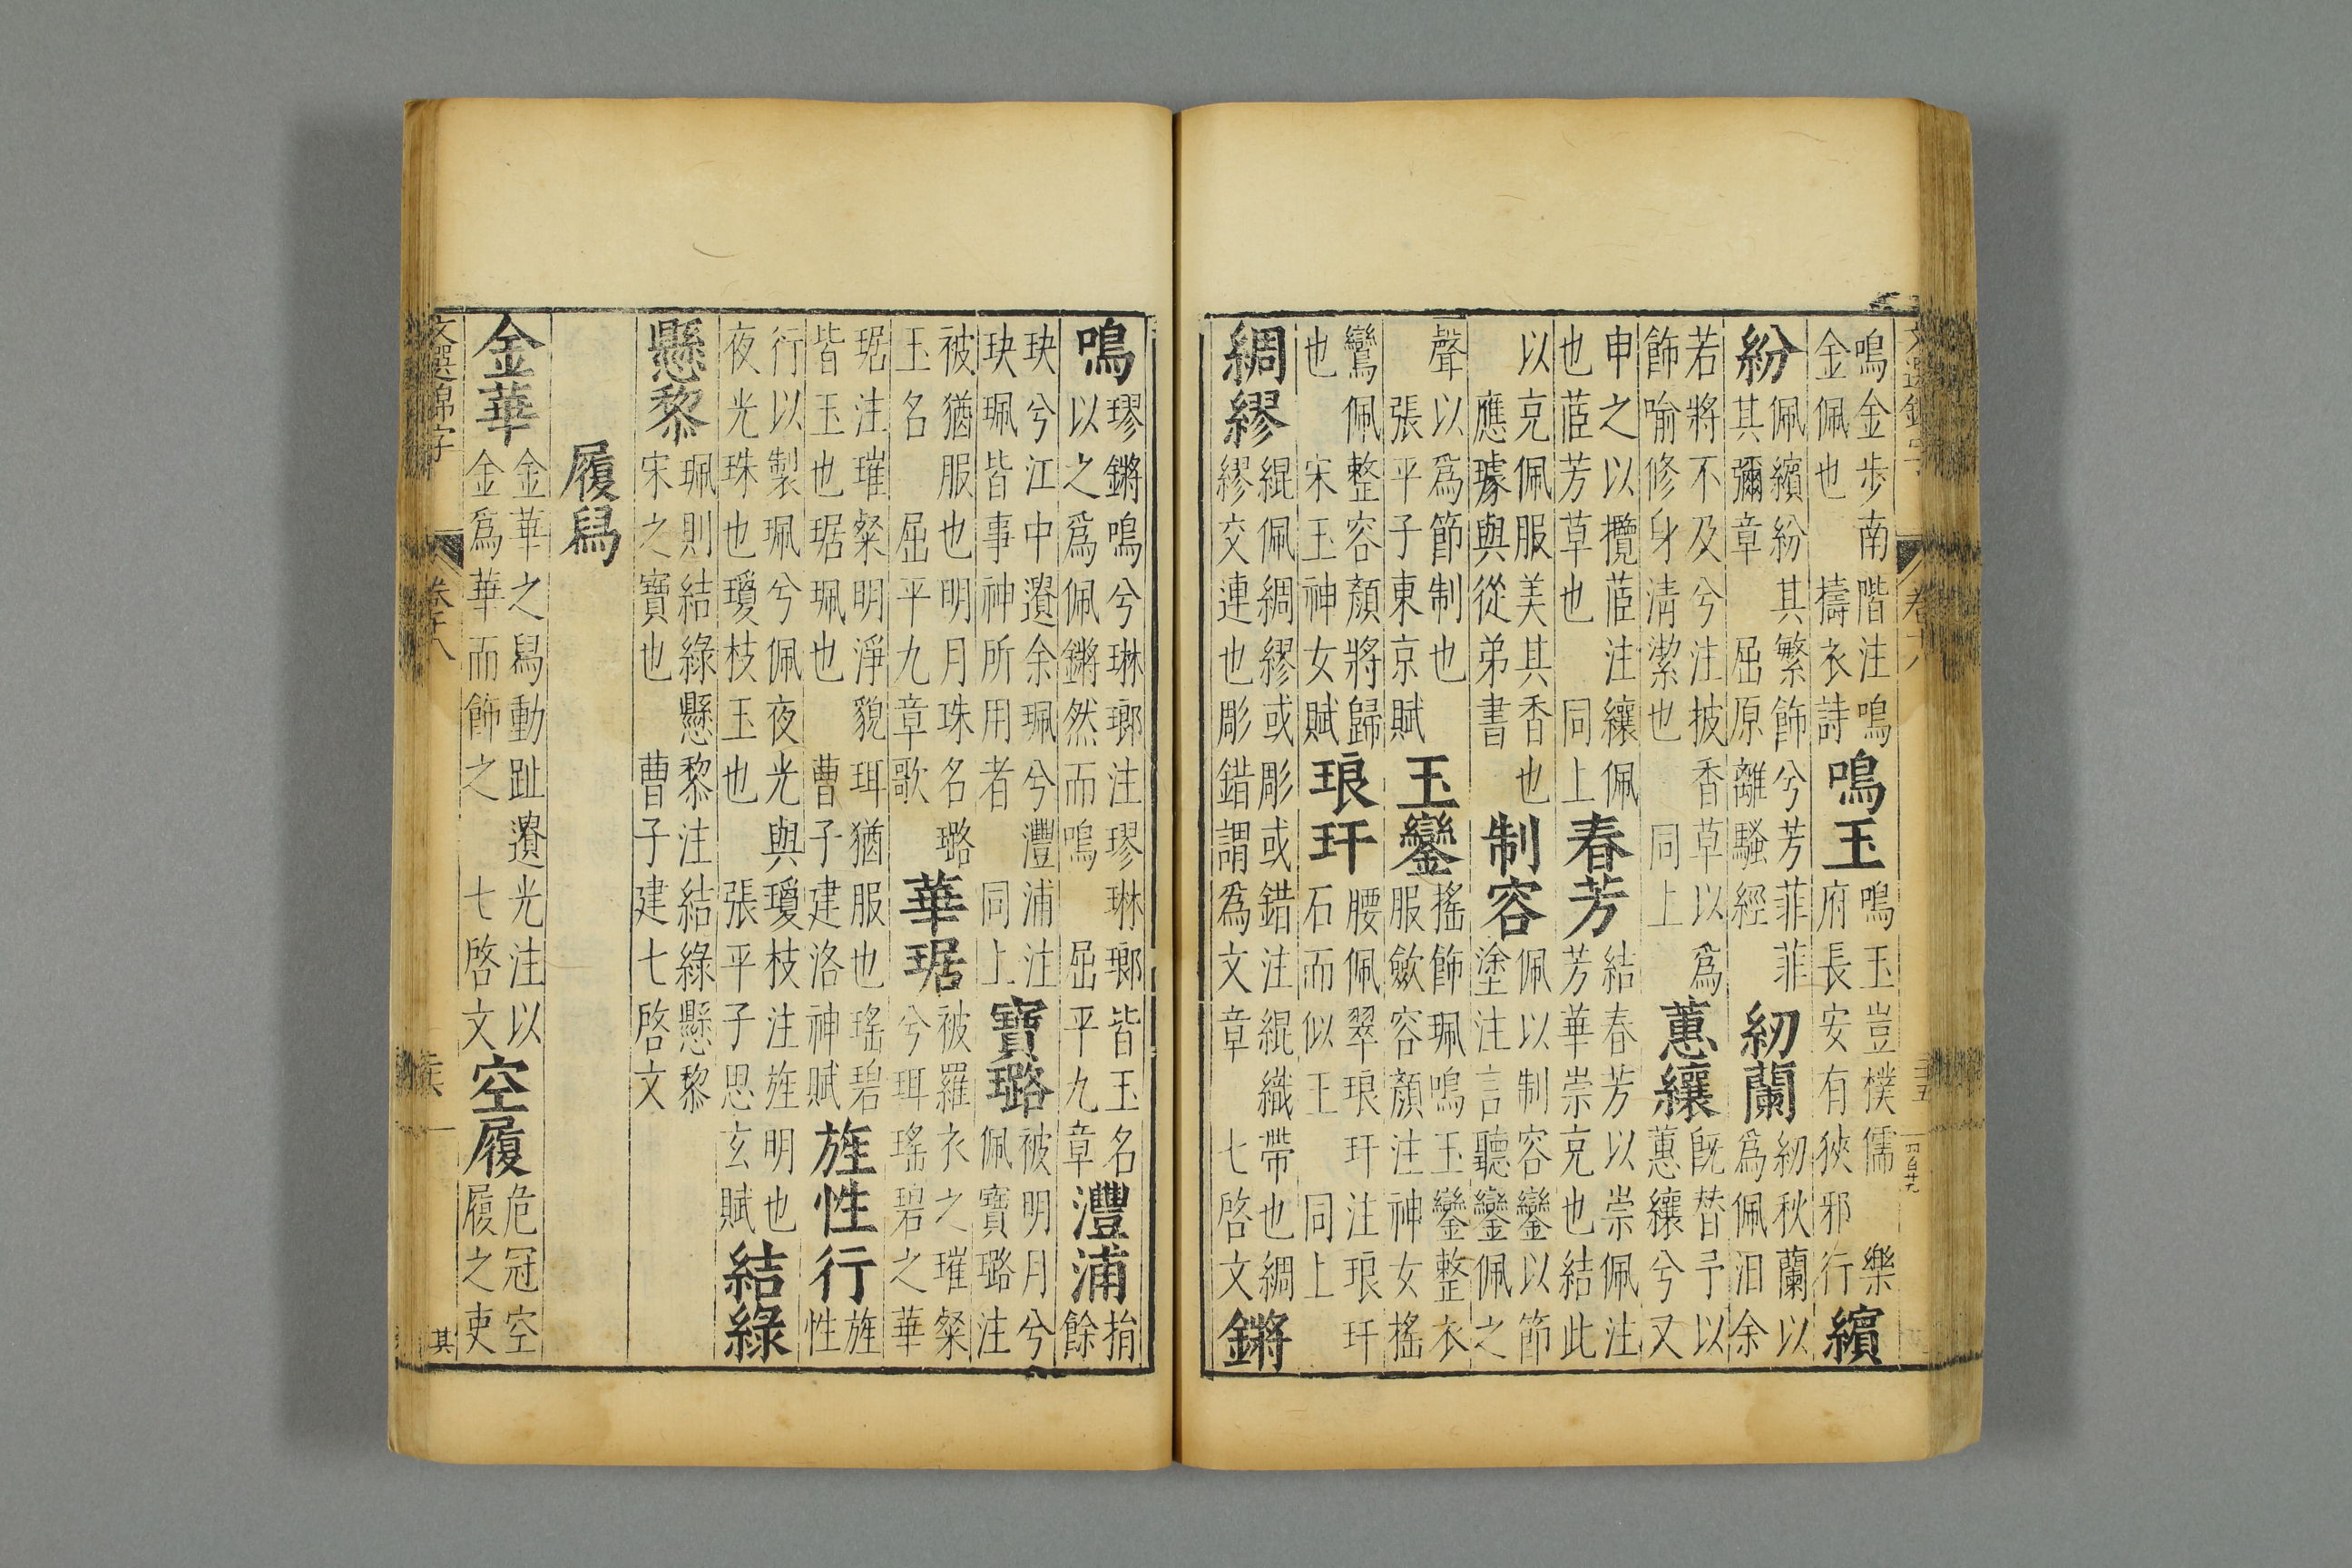 鳴金步南階注鳴金佩也 擣衣詩 鳴玉 鳴玉豈樸儒 樂府長安有狹邪行 繽
紛 佩繽紛其繁飾兮芳菲菲其彌章 屈原離騷經 紉蘭 紉秋蘭以爲佩汨余
若將不及兮注披香草以爲飾喻修身清潔也 同上 蕙纕 既替予以蕙纕兮又
申之以攬茝注纕佩也茝芳草也 同上 春芳 結春芳以崇佩注芳華崇充也結此
以充佩服美其香也 應璩與從弟書 制容 佩以制容鑾以節塗注言聽鑾佩之
聲以爲節制也 張平子東京賦 玉鑾 搖飾珮鳴玉鑾整衣服歛容顏注神女搖
鸞佩整容顏將歸也 宋玉神女賦 琅玕 腰佩翠琅玕注琅玕石而似玉 同上
綢繆 緄佩綢繆或彫或錯注緄織帶也綢繆交連也彫錯謂爲文章 七啓文 鏘
鳴 璆鏘鳴兮琳瑯注璆琳瑯皆玉名以之爲佩鏘然而鳴 屈平九章 澧浦 捐餘
玦兮江中遺余珮兮澧浦注玦珮皆事神所用者 同上 寶璐 被明月兮佩寶璐注
被猶服也明月珠名璐玉名 屈平九章歌 華琚 被羅衣之璀粲兮珥瑤碧之華
琚注璀粲明淨貌珥猶服也瑤碧皆玉也琚珮也 曹子建洛神賦 旌性行 旌性
行以製珮兮佩夜光與瓊枝注旌明也夜光珠也瓊枝玉也 張平子思玄賦 結綠
懸黎 珮則結綠懸黎注結綠懸黎宋之寶也 曹子建七啓文
履舄
金華 金華之舄動趾遺光注以金爲華而飾之 七啓文 空履 危冠空履之吏
文選錦字 卷十八 其